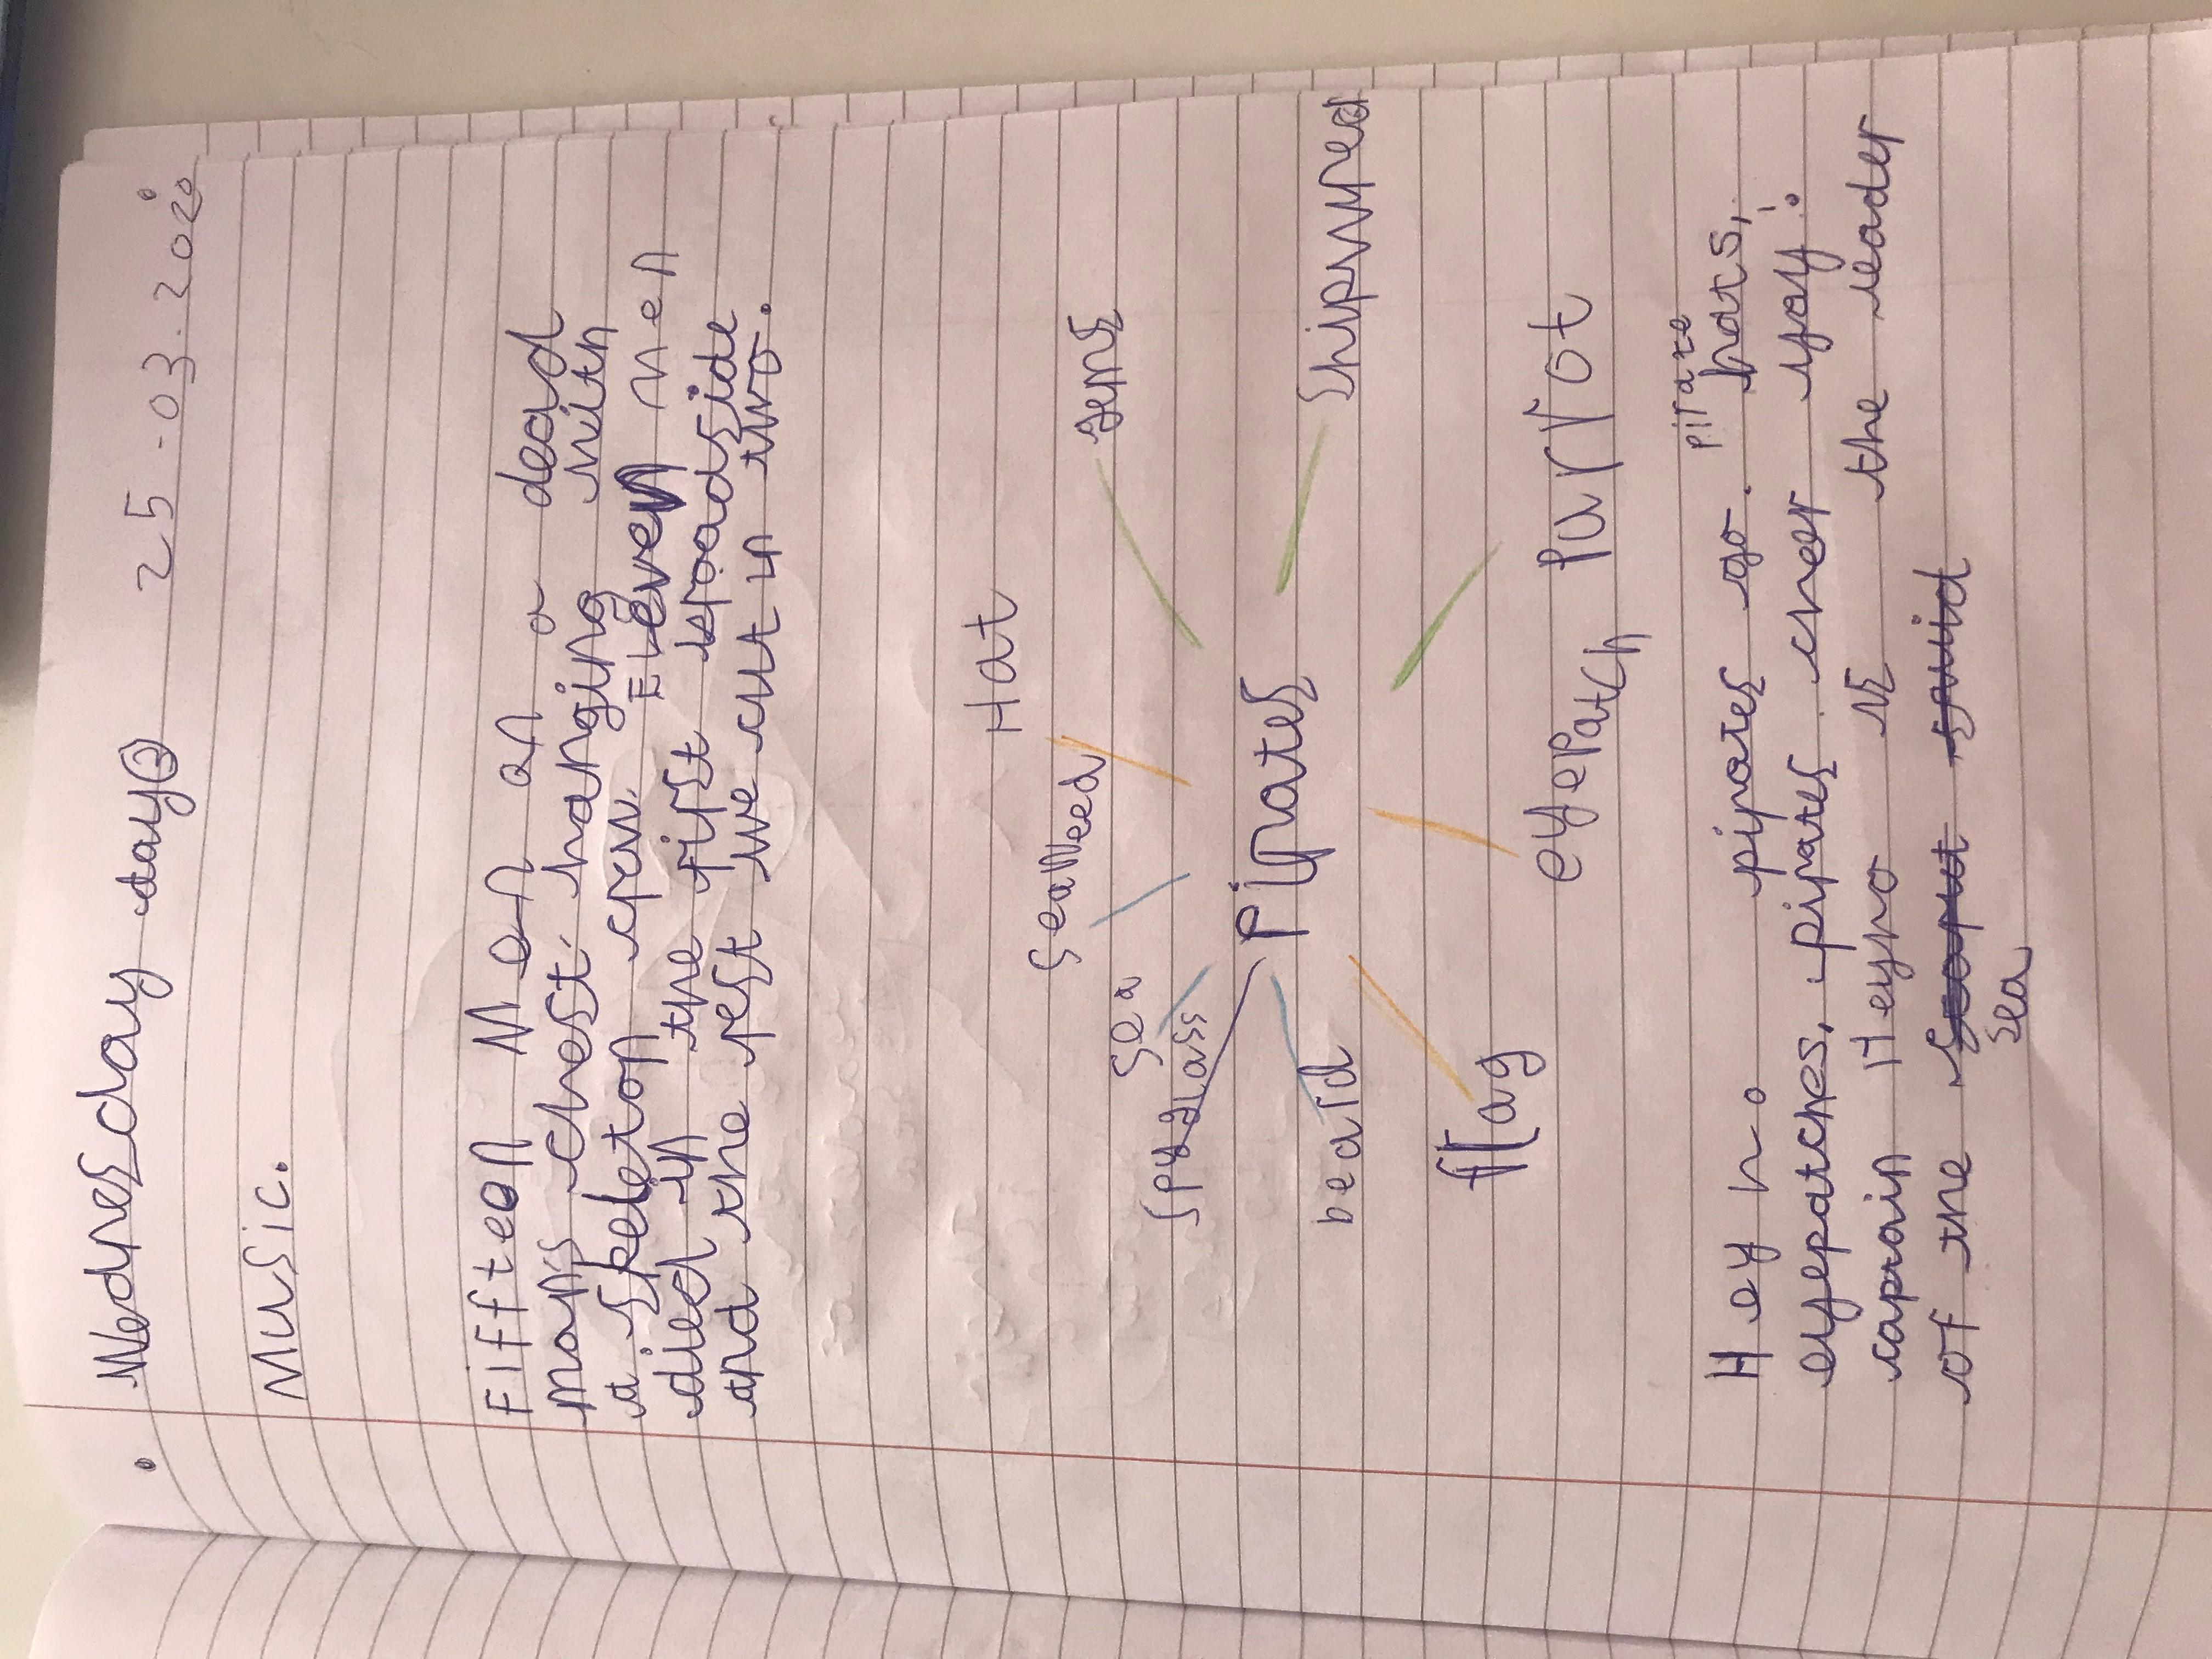 Wednesday day③ 25.03.2020
Music.
Fifteen Men on a dead
man's chest hanging with
a skeleton crew. Eleven men
died in the first broadside
and the rest we cut in two.
Hat
seaweed
gems
sea
spyglass
Pirates
Shipwreck
beard
flag
eyepatch
Parrot
pirate
Hey ho pirates go. hats,
eyepatches, pirates cheer yay!
captain Heyho is the leader
of the
sea